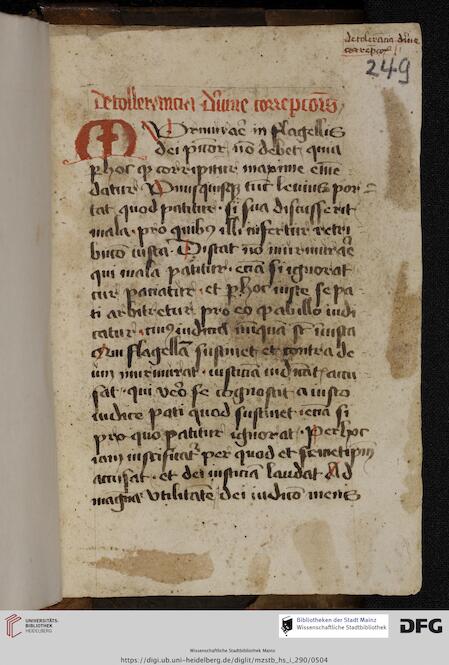 de tolerancia divine
correpcois
249
De tollerancia divine correpcois
Murmurare in flagellis
dei pctor no debet quia
p hoc q corripitur maxime eme
datur Unusquisq tuc levius por
tat quod patitur si sua discusserit
mala pro quibus illi infertur retri
bucio iusta Distat no murmurare
qui mala patitur etia si ignorat
cur paciatur et p hoc iuste se pa
ti arbitretur pro eo q ab illo iudi
catur cuius iudicia nunqua st iniusta
Qui flagella sustinet et contra de
um murmurat iusticia iudicatis accu
sat qui vero se cognoscit a iusto
iudice pati quod sustinet etia si
pro quo patitur ignorat Per hoc
iam iustificatur per quod et semetipm
accusat et dei iusticia laudat Ad
magna utilitate dei iudicio mens
UNIVERSITÄTS-
BIBLIOTHEK
HEIDELBERG
Bibliotheken der Stadt Mainz
Wissenschaftliche Stadtbibliothek
DFG
Wissenschaftliche Stadtbibliothek Mainz
https://digi.ub.uni-heidelberg.de/diglit/mzstb_hs_i_290/0504